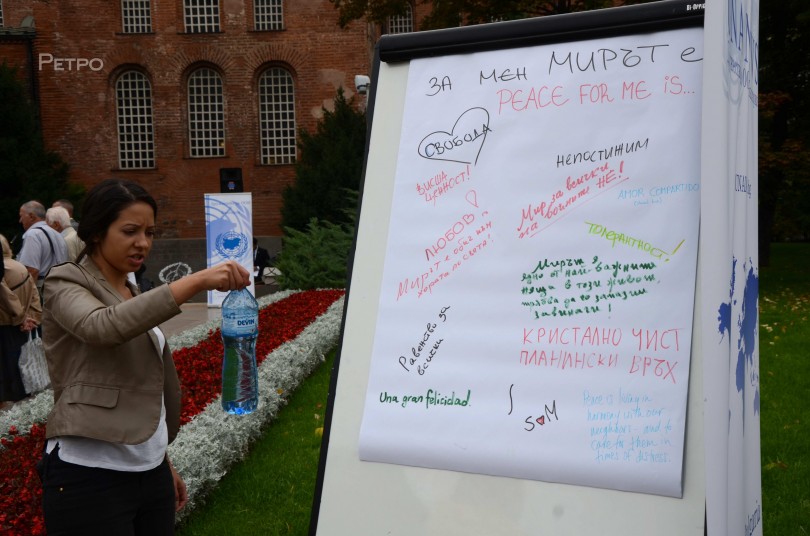 Ретро
ЗА МЕН МИРЪТ е
PEACE FOR ME IS...
СВОБОДА
НЕПОСТИЖИМ
ВИСША
ЦЕННОСТ!
Мир за всички
на войните НЕ!
AMOR COMPARTIDO
ЛЮБОВ!
ТОЛЕРАНТНОСТ!
Мирът е
хората по света!
Мирът е
едно от най-важните
неща в този живот,
трябва да го запазим
завинаги!
Равенство за
всички
КРИСТАЛНО ЧИСТ
ПЛАНИНСКИ ВРЪХ
Una gran felicidad.
S M
Peace is being in
harmony with our
neighbors and to
care for them in
times of distress.
DEVIN